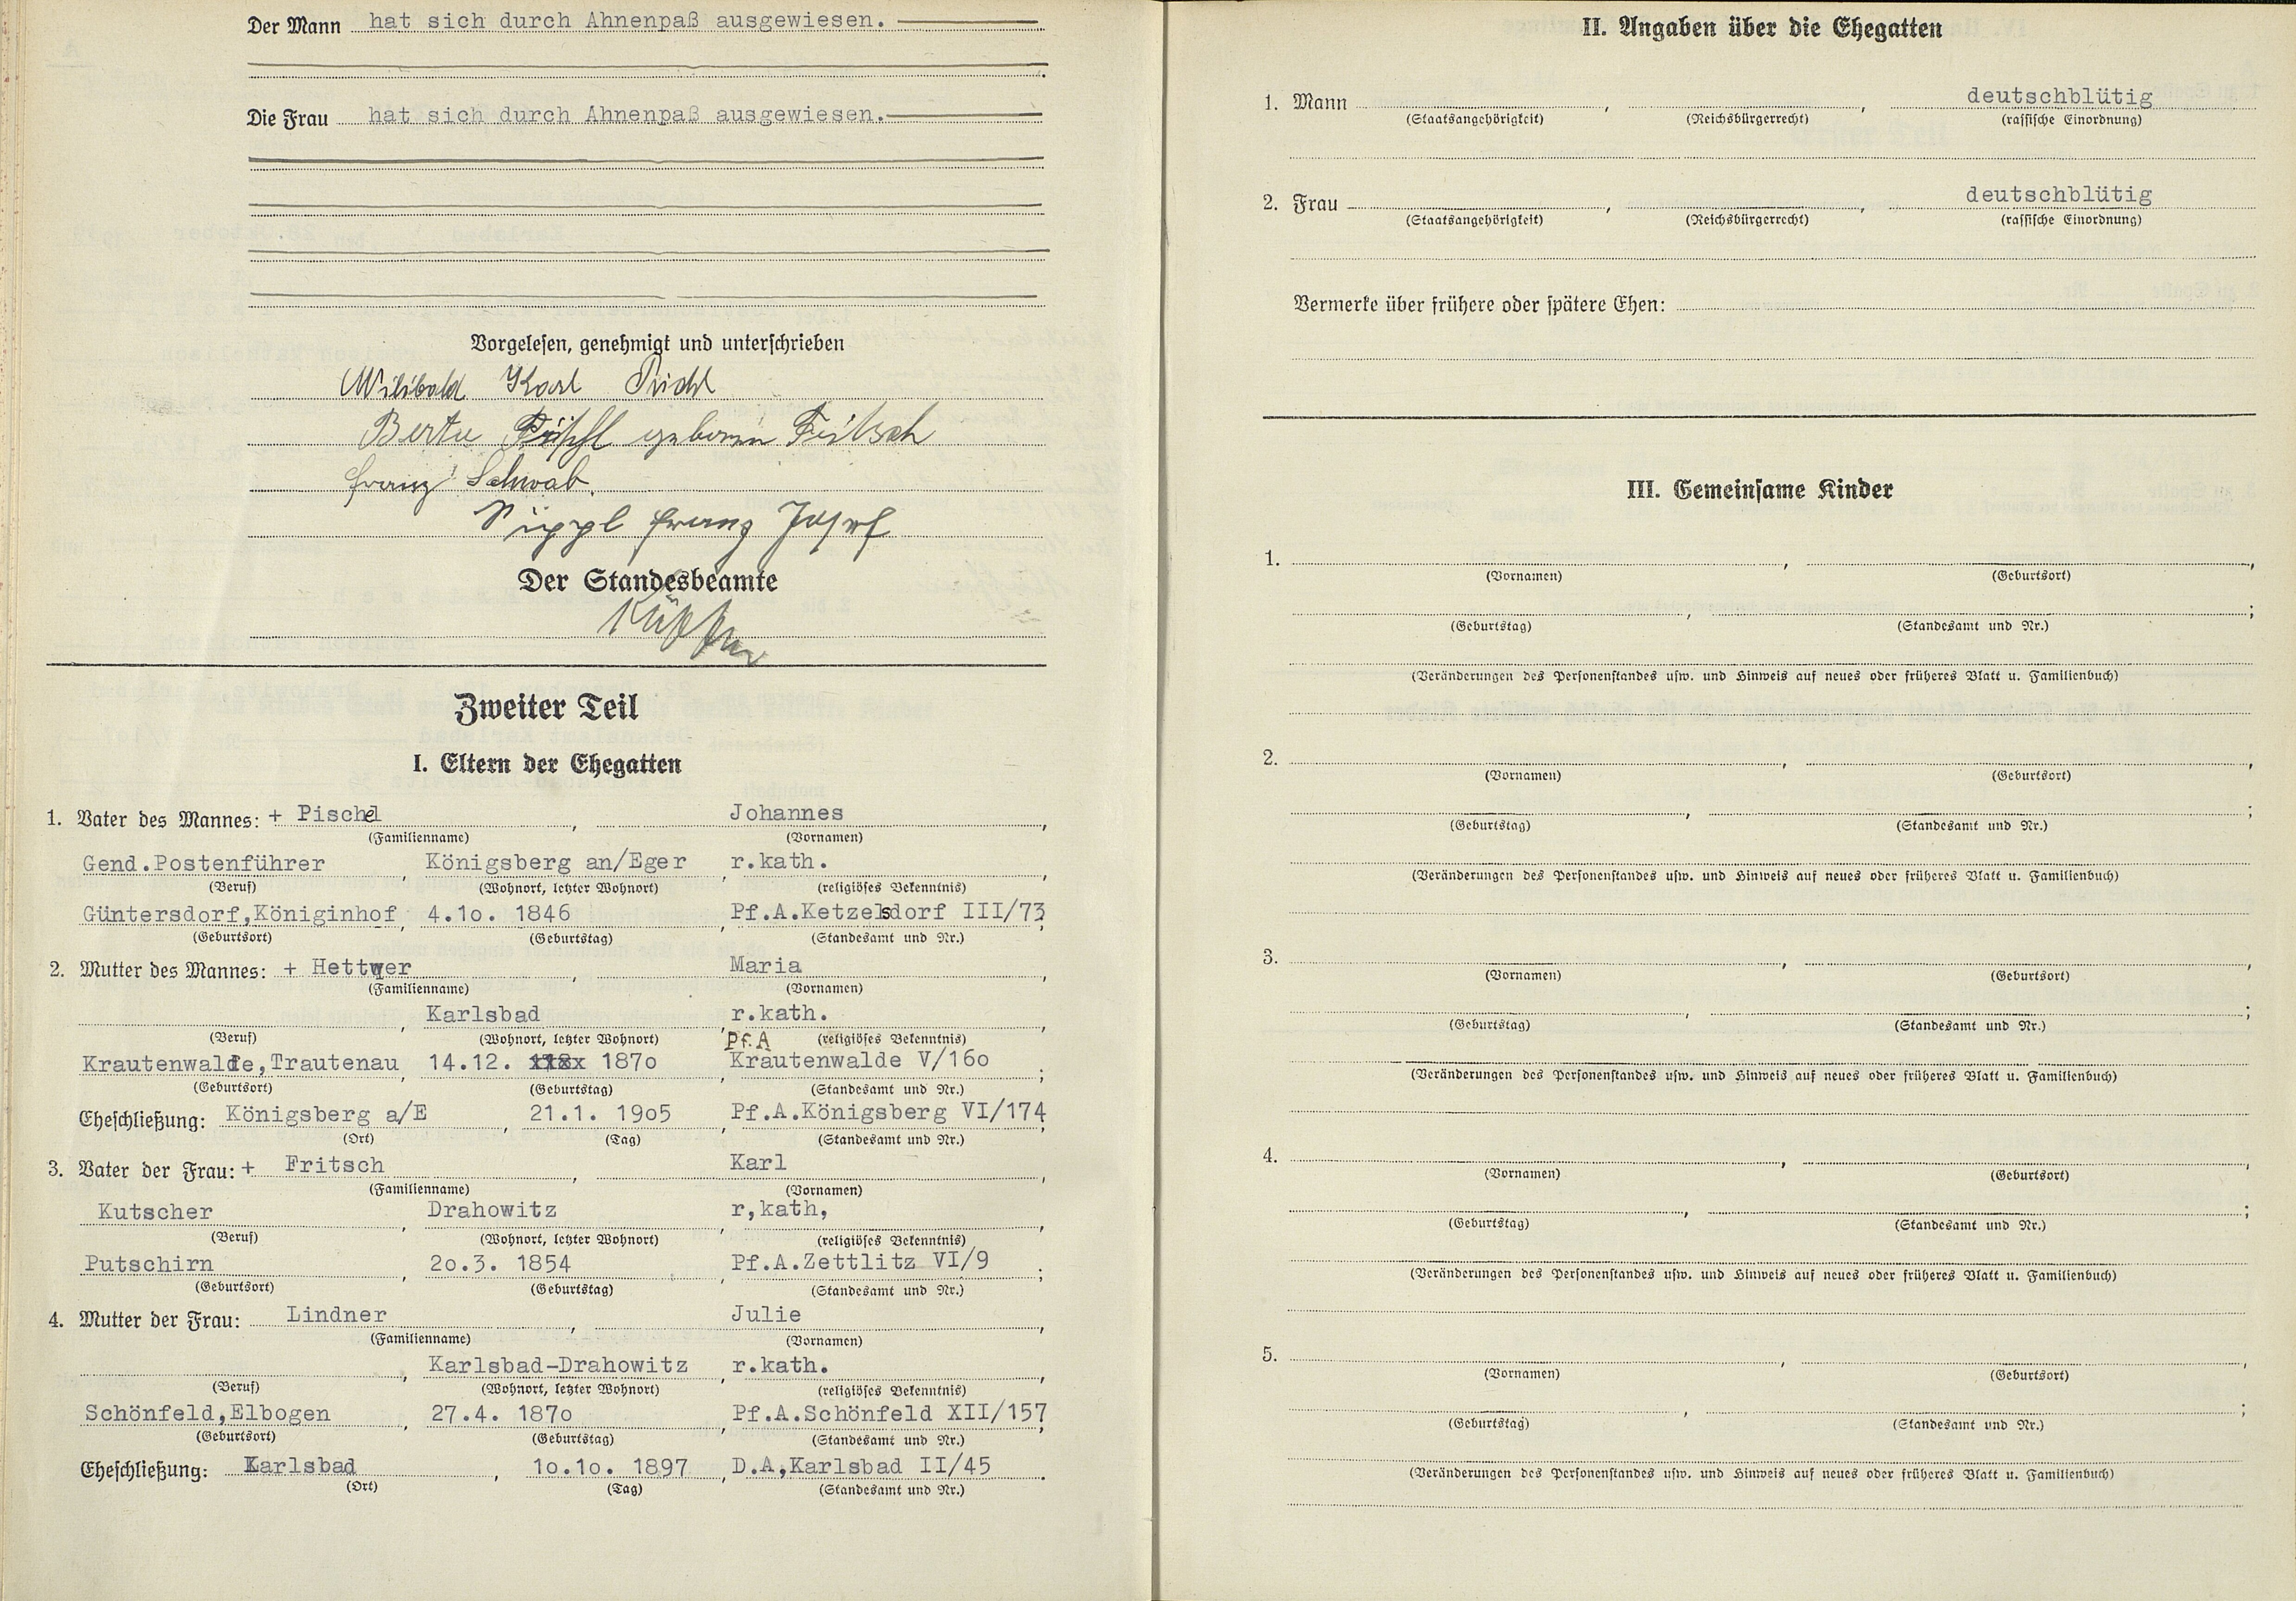 Der Mann hat sich durch Ahnenpaß ausgewiesen.
Die Frau hat sich durch Ahnenpaß ausgewiesen.
Vorgelesen, genehmigt und unterschrieben
Wilibald Karl
Berta geboren Fritsch
Franz Schwab.
Süppl Franz Josef
Der Standesbeamte
Zweiter Teil
I. Eltern der Ehegatten
1. Vater des Mannes: + Pischel, Johannes,
(Familienname) (Vornamen)
Gend.Postenführer, Königsberg an/Eger, r.kath.,
(Beruf) (Wohnort, letzter Wohnort) (religiöses Bekenntnis)
Güntersdorf,Königinhof, 4.1o. 1846, Pf.A.Ketzelsdorf III/73;
(Geburtsort) (Geburtstag) (Standesamt und Nr.)
2. Mutter des Mannes: + Hettwer, Maria,
(Familienname) (Vornamen)
, Karlsbad, r.kath.,
(Beruf) (Wohnort, letzter Wohnort) (religiöses Bekenntnis)
Pf.A
Krautenwalde,Trautenau, 14.12. 187o, Krautenwalde V/16o;
(Geburtsort) (Geburtstag) (Standesamt und Nr.)
Eheschließung: Königsberg a/E, 21.1. 19o5, Pf.A.Königsberg VI/174;
(Ort) (Tag) (Standesamt und Nr.)
3. Vater der Frau: + Fritsch, Karl,
(Familienname) (Vornamen)
Kutscher, Drahowitz, r,kath,,
(Beruf) (Wohnort, letzter Wohnort) (religiöses Bekenntnis)
Putschirn, 2o.3. 1854, Pf.A.Zettlitz VI/9;
(Geburtsort) (Geburtstag) (Standesamt und Nr.)
4. Mutter der Frau: Lindner, Julie,
(Familienname) (Vornamen)
, Karlsbad-Drahowitz, r.kath.,
(Beruf) (Wohnort, letzter Wohnort) (religiöses Bekenntnis)
Schönfeld,Elbogen, 27.4. 187o, Pf.A.Schönfeld XII/157;
(Geburtsort) (Geburtstag) (Standesamt und Nr.)
Eheschließung: Karlsbad, 1o.1o. 1897, D.A,Karlsbad II/45.
(Ort) (Tag) (Standesamt und Nr.)
II. Angaben über die Ehegatten
1. Mann, , deutschblütig
(Staatsangehörigkeit) (Reichsbürgerrecht) (rassische Einordnung)
2. Frau, , deutschblütig
(Staatsangehörigkeit) (Reichsbürgerrecht) (rassische Einordnung)
Vermerke über frühere oder spätere Ehen:
III. Gemeinsame Kinder
1. , ,
(Vornamen) (Geburtsort)
, ;
(Geburtstag) (Standesamt und Nr.)
(Veränderungen des Personenstandes usw. und Hinweis auf neues oder früheres Blatt u. Familienbuch)
2. , ,
(Vornamen) (Geburtsort)
, ;
(Geburtstag) (Standesamt und Nr.)
(Veränderungen des Personenstandes usw. und Hinweis auf neues oder früheres Blatt u. Familienbuch)
3. , ,
(Vornamen) (Geburtsort)
, ;
(Geburtstag) (Standesamt und Nr.)
(Veränderungen des Personenstandes usw. und Hinweis auf neues oder früheres Blatt u. Familienbuch)
4. , ,
(Vornamen) (Geburtsort)
, ;
(Geburtstag) (Standesamt und Nr.)
(Veränderungen des Personenstandes usw. und Hinweis auf neues oder früheres Blatt u. Familienbuch)
5. , ,
(Vornamen) (Geburtsort)
, ;
(Geburtstag) (Standesamt und Nr.)
(Veränderungen des Personenstandes usw. und Hinweis auf neues oder früheres Blatt u. Familienbuch)